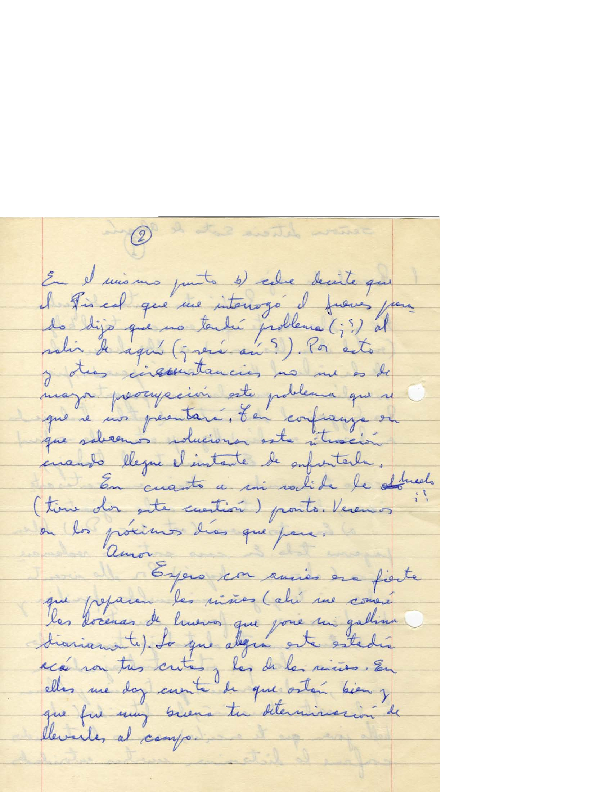 2
En el mismo punto b) cabe decirte que
el Fiscal que me interrogó el jueves pasa-
do dijo que no tendré problema (¡?) al
salir de aquí (¿será así?). Por esto
y otras circunstancias no me es de
mayor preocupación este problema que sé
que se nos presentará. Ten confianza en
que sabremos solucionar esta situación
cuando llegue el instante de enfrentarla.
En cuanto a mi salida la huelo ¡!
(tiene olor esta cuestión) pronto. Veremos
en los próximos días que pasa.
Amor
Espero con ansias esa fiesta
que preparan los niños (ahí me comeré
las docenas de huevos que pone mi gallina
diariamente). Lo que alegra esta estadía
acá son tus cartas y las de los niños. En
ellas me doy cuenta de que están bien y
que fue muy buena tu determinación de
llevarles al campo.